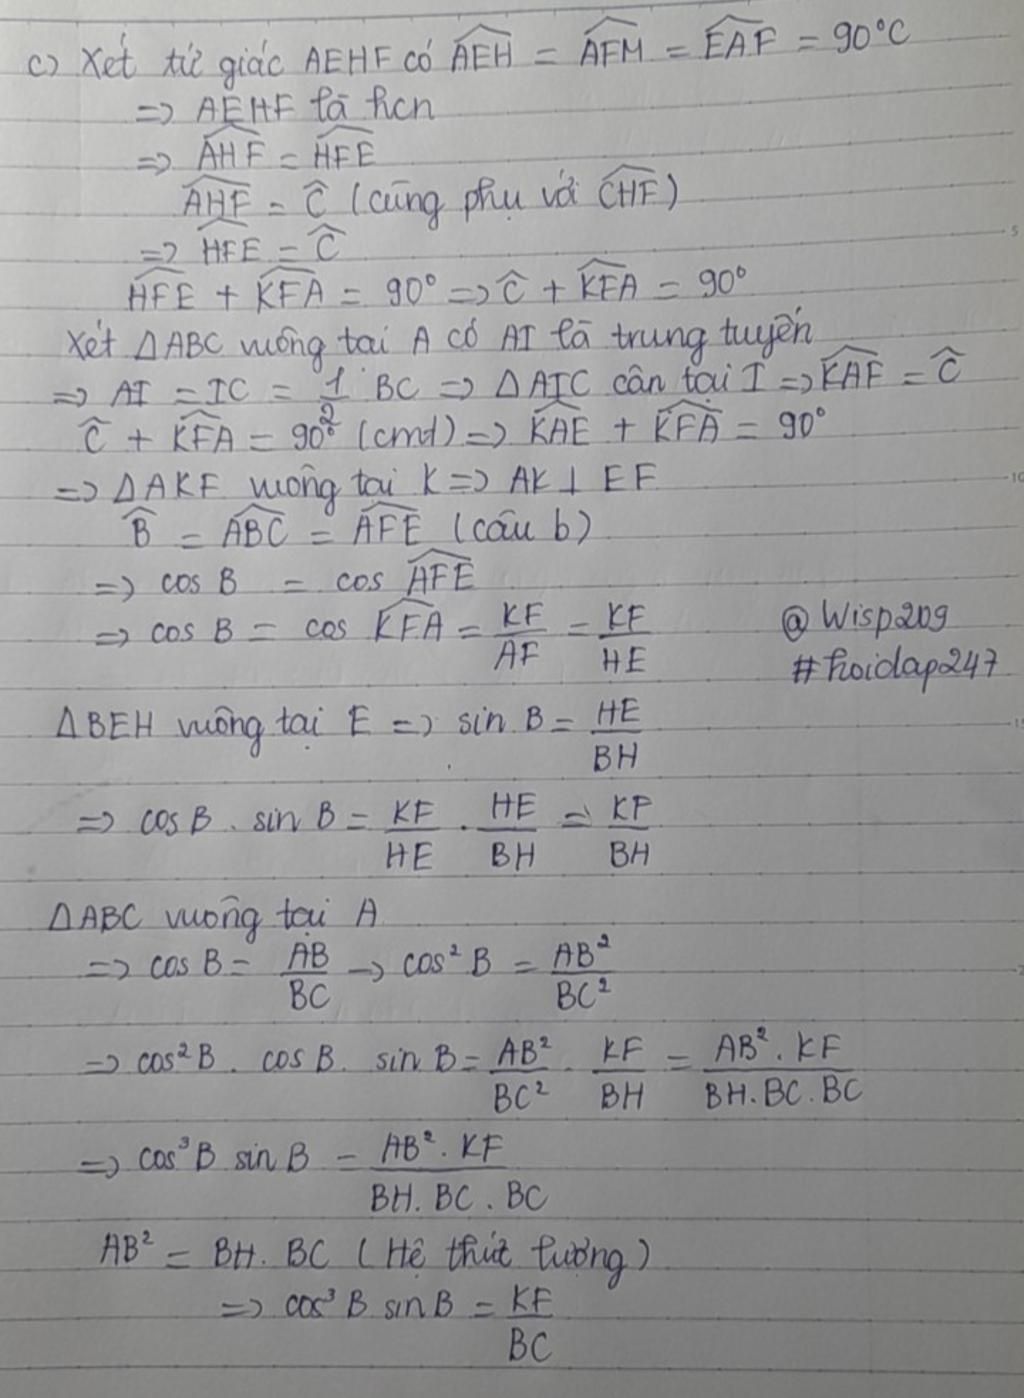 c) Xét tứ giác AEHF có \widehat{AEH} = \widehat{AFM} = \widehat{EAF} = 90°C
=> AEHF là hcn
=> \widehat{AHF} = \widehat{HFE}
\widehat{AHF} = \widehat{C} (cùng phụ với \widehat{CHF})
=> \widehat{HFE} = \widehat{C}
\widehat{HFE} + \widehat{KFA} = 90° => \widehat{C} + \widehat{KFA} = 90°
Xét ΔABC vuông tại A có AI là trung tuyến
=> AI = IC = \frac{1}{2} BC => ΔAIC cân tại I => \widehat{KAF} = \widehat{C}
\widehat{C} + \widehat{KFA} = 90° (cmt) => \widehat{KAE} + \widehat{KFA} = 90°
=> ΔAKF vuông tại K => AK ⊥ EF
\widehat{B} = \widehat{ABC} = \widehat{AFE} (câu b)
=> cos B = cos \widehat{AFE}
=> cos B = cos \widehat{KFA} = \frac{KF}{AF} = \frac{KF}{HE}
@Wisp209
#hoidap247
ΔBEH vuông tại E => sin B = \frac{HE}{BH}
=> cos B . sin B = \frac{KF}{HE} . \frac{HE}{BH} = \frac{KF}{BH}
ΔABC vuông tại A
=> cos B = \frac{AB}{BC} → cos² B = \frac{AB²}{BC²}
=> cos² B . cos B . sin B = \frac{AB²}{BC²} . \frac{KF}{BH} = \frac{AB² . KF}{BH . BC . BC}
=> cos³ B sin B = \frac{AB² . KF}{BH . BC . BC}
AB² = BH . BC (Hệ thức lượng)
=> cos³ B sin B = \frac{KF}{BC}